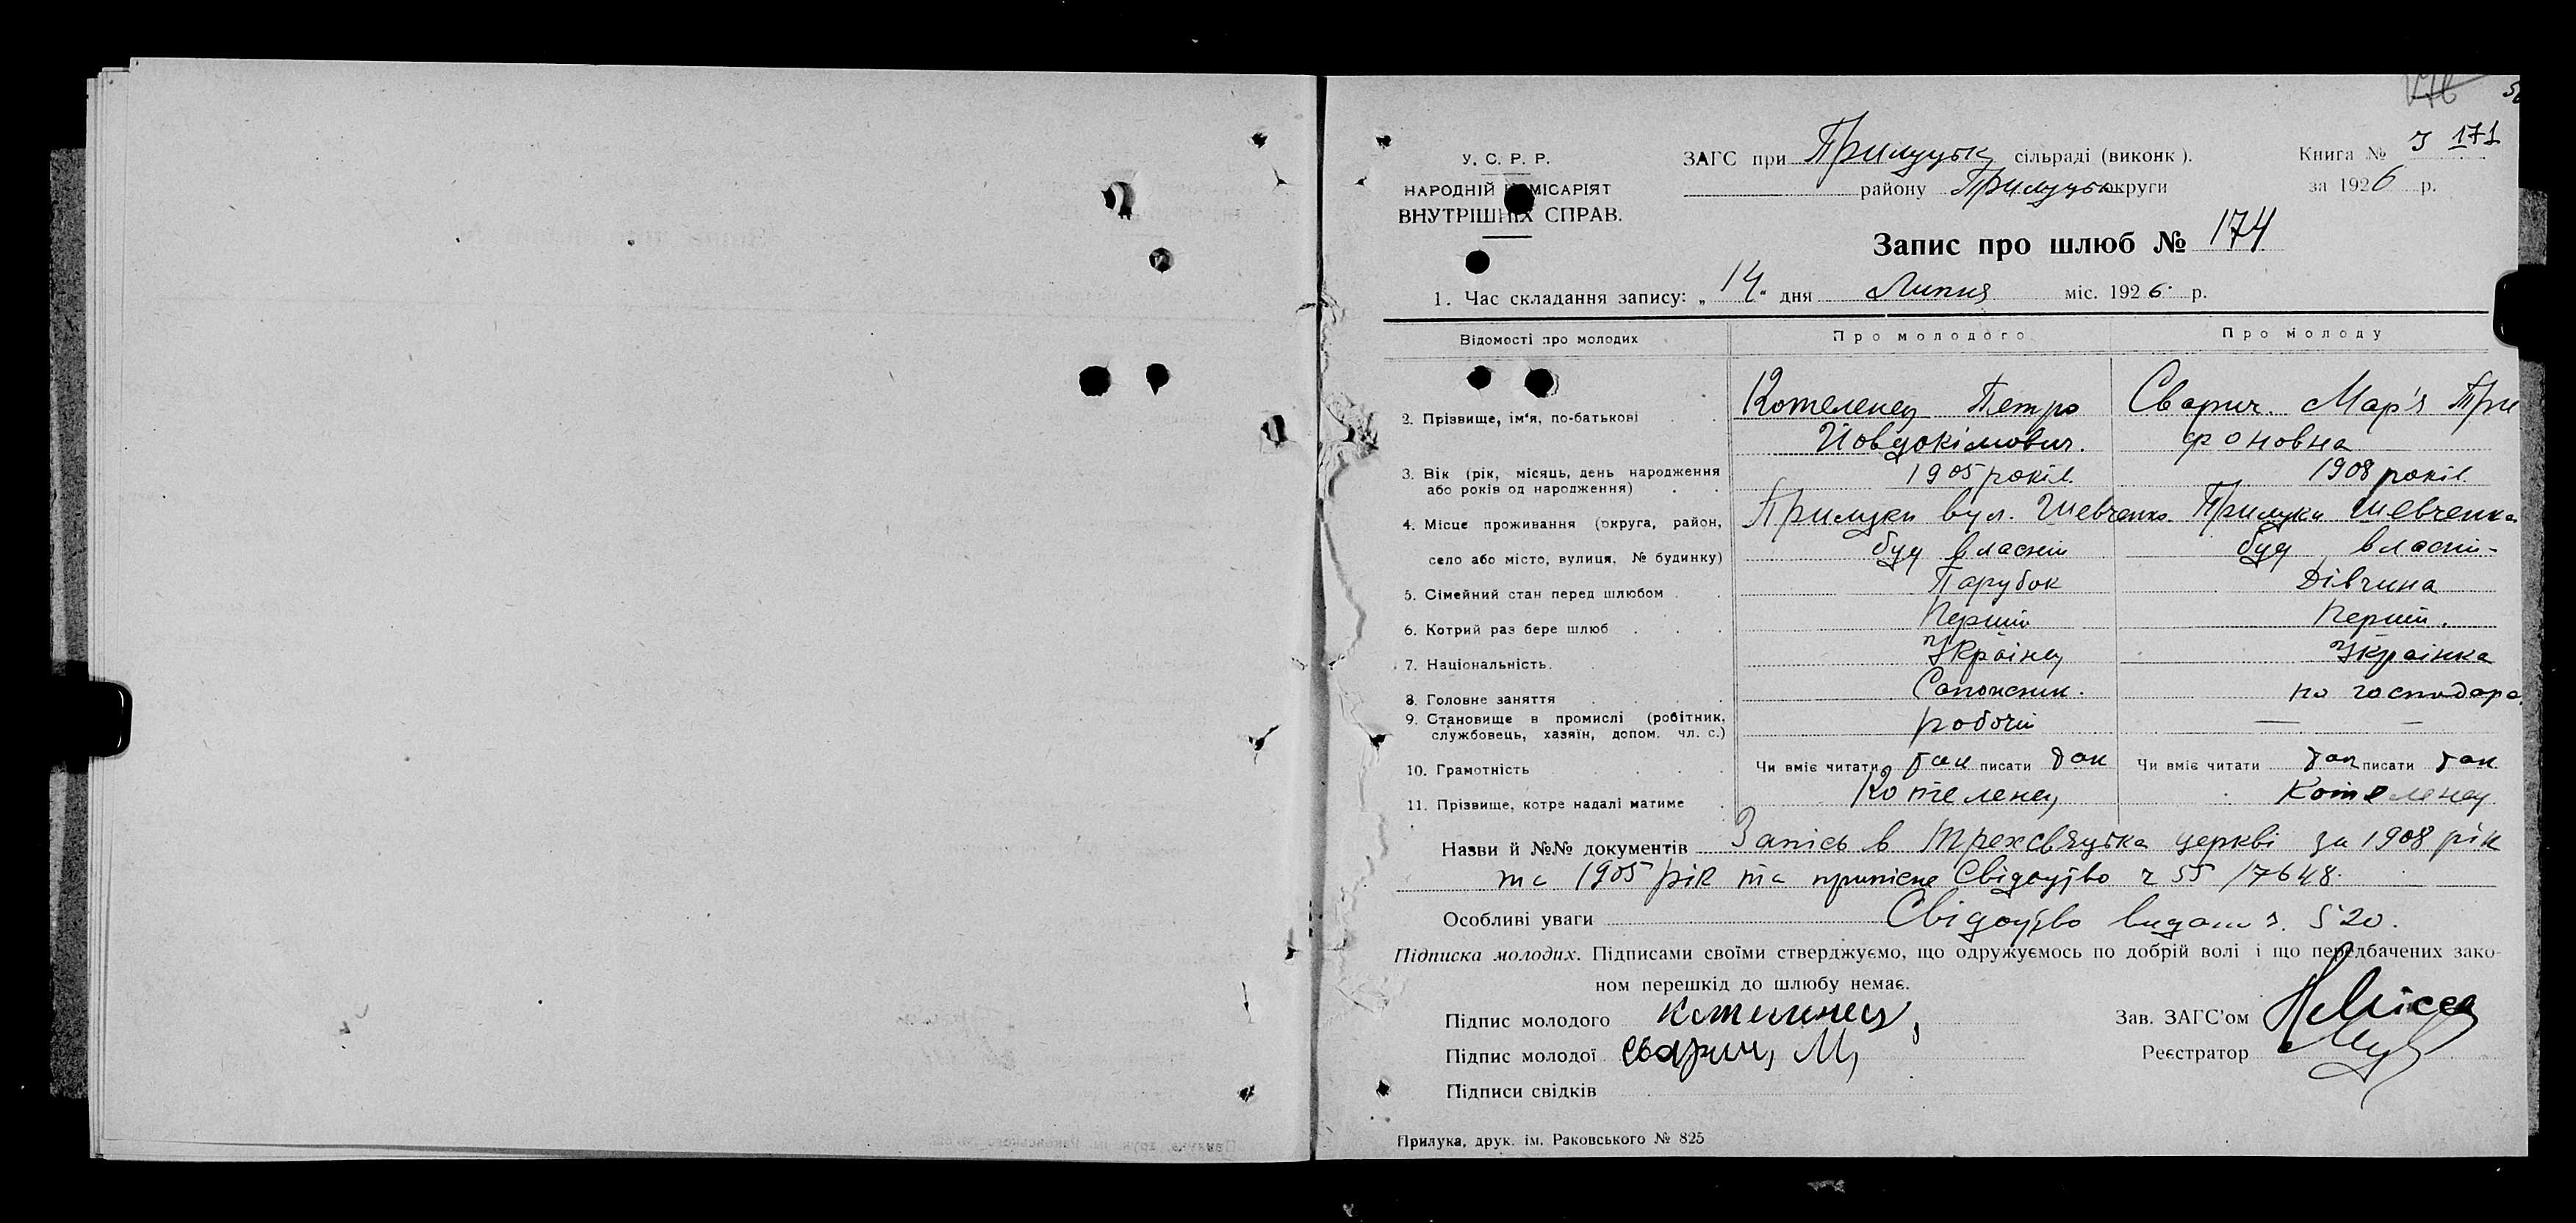 176
171
У. С. Р. Р.
НАРОДНІЙ КОМІСАРІЯТ
ВНУТРІШНІХ СПРАВ.
ЗАГС при Прилуцьк сільраді (виконк).
району Прилуцьк округи
Книга №
за 1926 р.
Запис про шлюб № 174
1. Час складання запису: „14“ дня Липня міс. 1926 р.
Відомості про молодих Про молодого Про молоду
2. Прізвище, ім'я, по-батькові Котеленец Петро Сварич. Мар'я Три
Йовдокімович. фоновна
3. Вік (рік, місяць, день народження 1905 років. 1908 років.
або років од народження)
4. Місце проживання (округа, район, Прилуки вул. Шевченко Прилуки Шевченка
село або місто, вулиця, № будинку) буд власній буд власній
5. Сімейний стан перед шлюбом Парубок Дівчина
6. Котрий раз бере шлюб Перший Перший.
7. Національність. Українец Українка
8. Головне заняття Сапожник. по господарс
9. Становище в промислі (робітник, робочий — —
службовець, хазяїн, допом. чл. с.)
10. Грамотність Чи вміє читати так писати так Чи вміє читати так писати так
11. Прізвище, котре надалі матиме Котеленец Котеленец
Назви й №№ документів Запісь в Трехсвяцька церкві за 1908 рік
та 1905 рік та приписне Свідоцтво ч 55 / 7648.
Особливі уваги Свідоцтво видано 520.
Підписка молодих. Підписами своїми стверджуємо, що одружуємось по добрій волі і що передбачених зако-
ном перешкід до шлюбу немає.
Підпис молодого Котеленец Зав. ЗАГС'ом
Підпис молодої Сварич, М, Реєстратор
Підписи свідків
Прилука, друк. ім. Раковського № 825